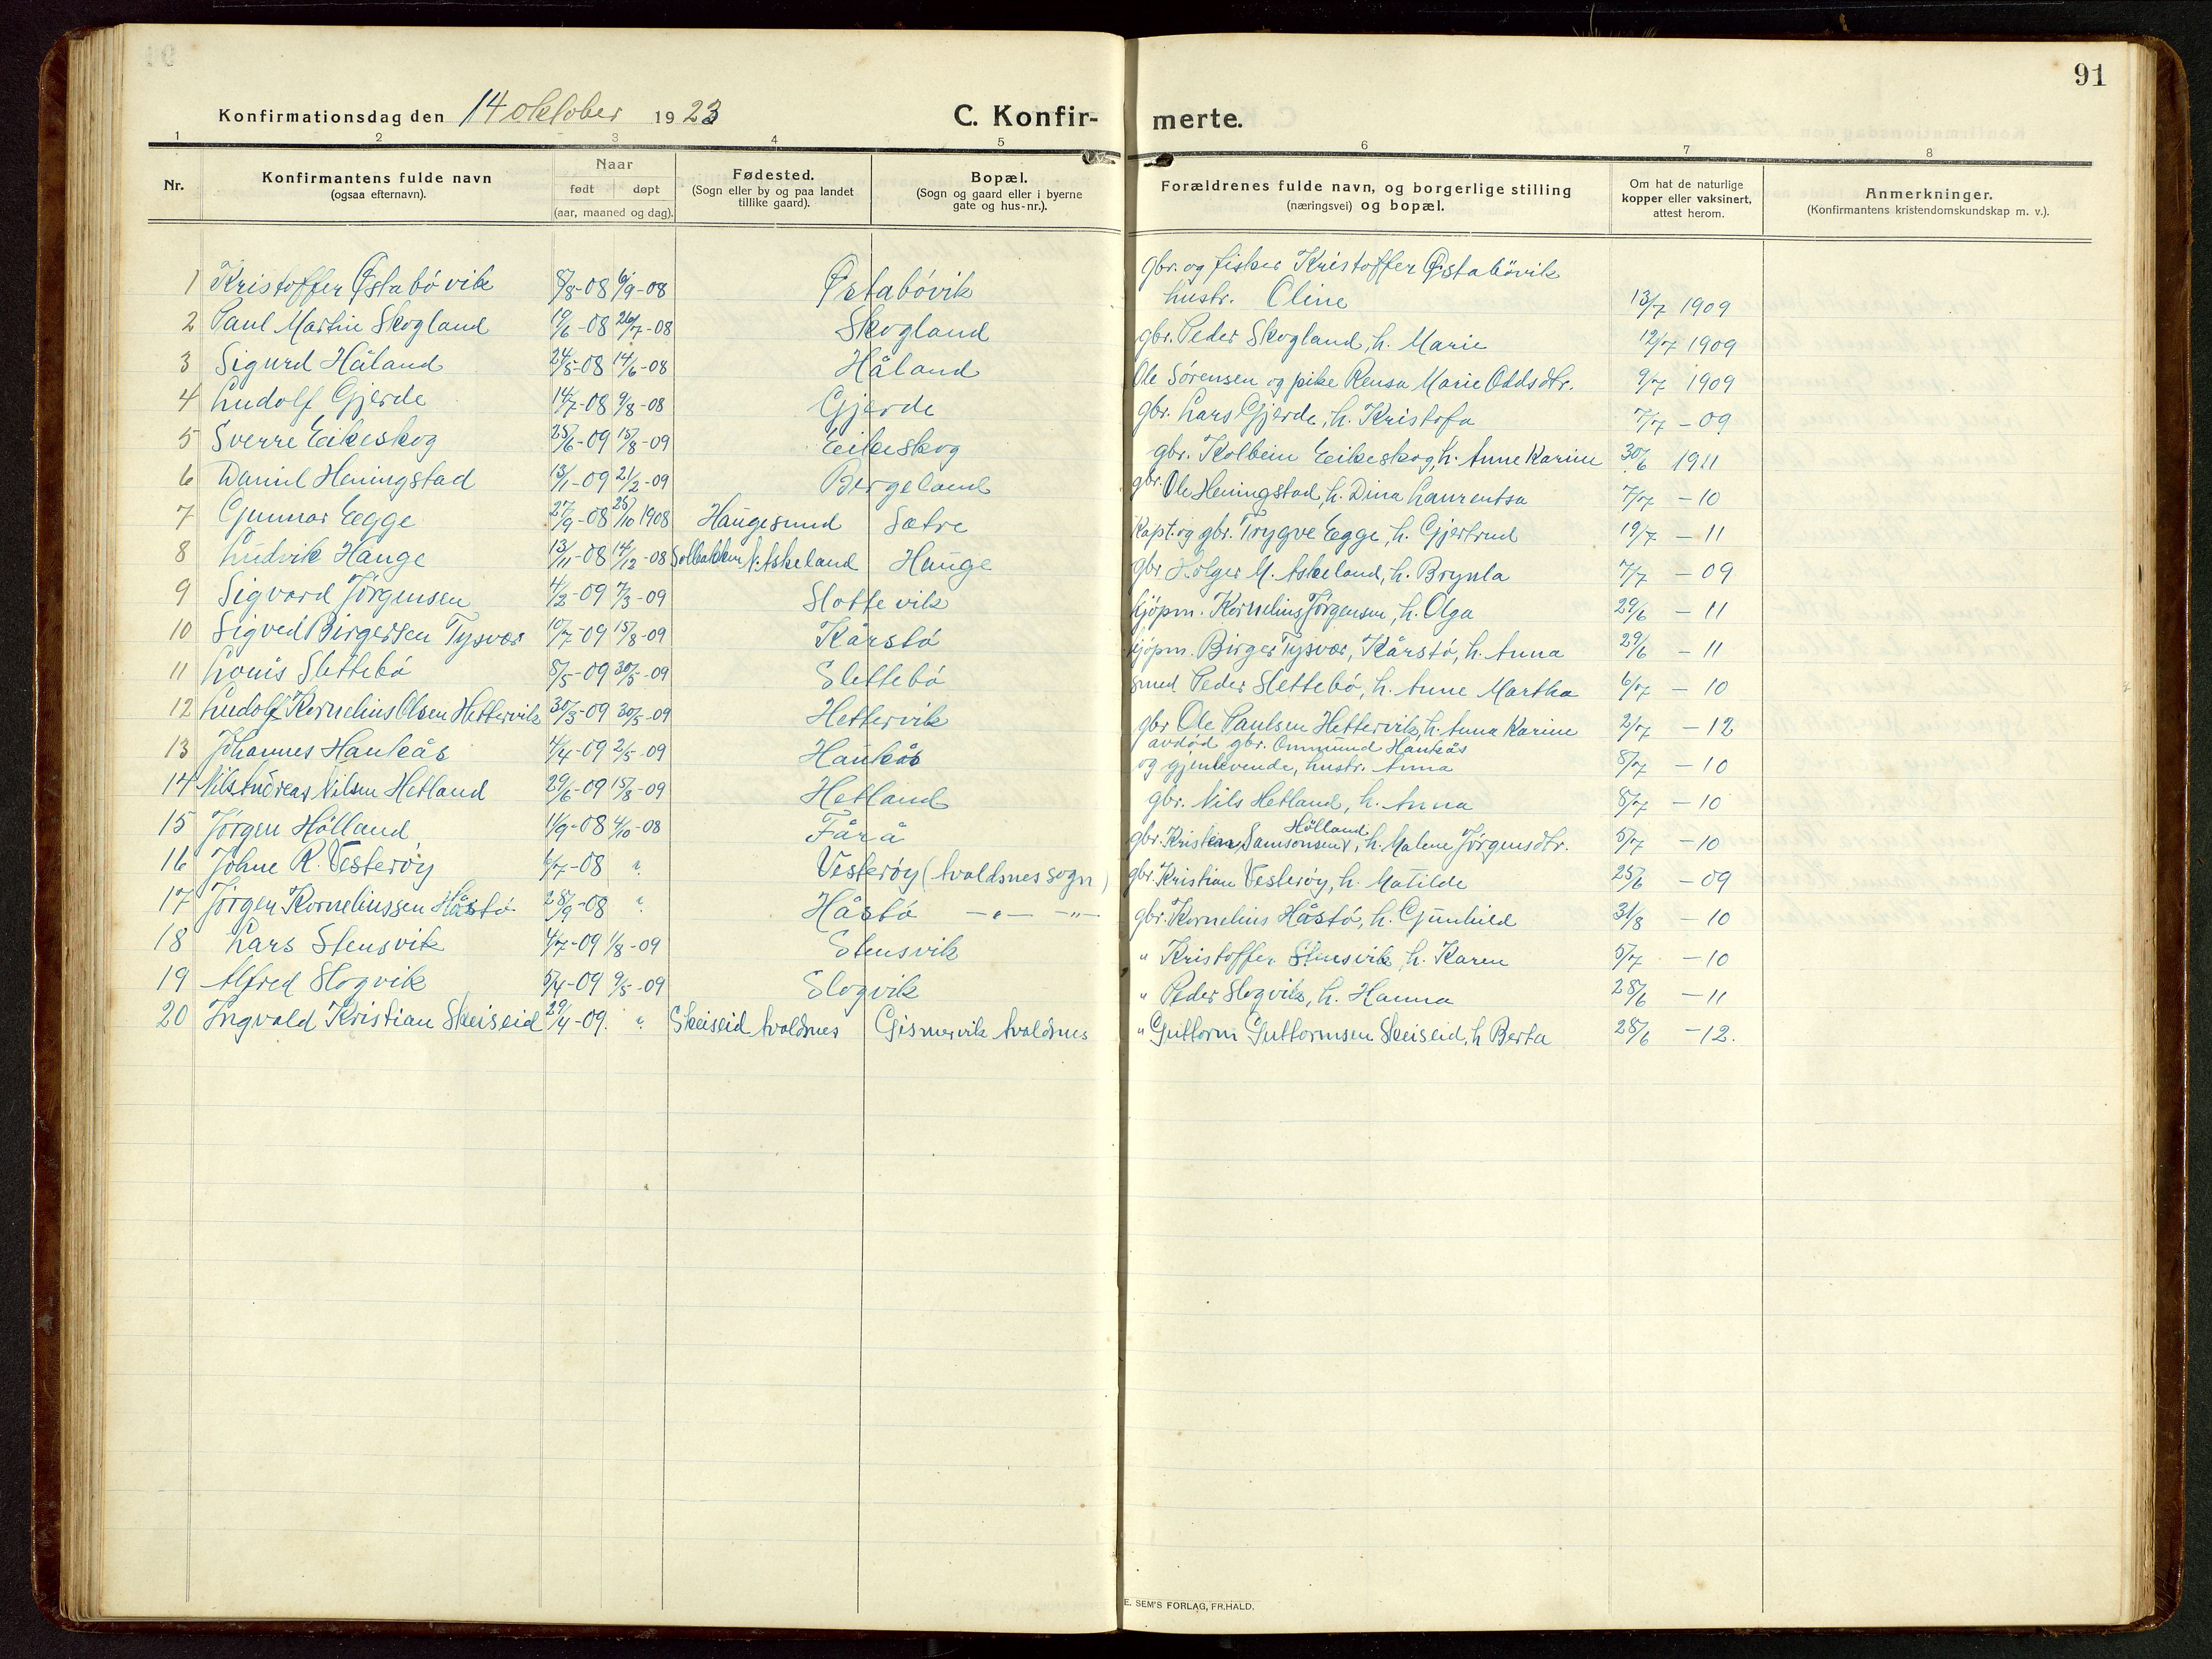 91
Konfirmationsdag den 14 oktober 1923
C. Konfirmerte.
1 2 3 4 5 6 7 8
Nr.
Konfirmantens fulde navn
(ogsaa efternavn).
Naar
født døpt
(aar, maaned og dag).
Fødested.
(Sogn eller by og paa landet
tillike gaard).
Bopæl.
(Sogn og gaard eller i byerne
gate og hus-nr.).
Forældrenes fulde navn, og borgerlige stilling
(næringsvei) og bopæl.
Om hat de naturlige
kopper eller vaksinert,
attest herom.
Anmerkninger.
(Konfirmantens kristendomskundskap m. v.).
1 Kristoffer Østabövik 8/8-08 6/9-08 Østabövik gbr. og fisker Kristoffer Østabövik
hustr. Oline 13/7 1909
2 Paul Martin Skogland 19/6-08 26/7-08 Skogland gbr. Peder Skogland, h. Marie 12/7 1909
3 Sigurd Håland 24/5-08 14/6-08 Håland Ole Sørensen og pike Rensa Marie Oddsdtr. 9/7 1909
4 Ludolf Gjerde 14/7-08 9/8-08 Gjerde gbr. Lars Gjerde, h. Kristofa 7/7 - 09
5 Sverre Eikeskog 25/6-09 15/8-09 Eikeskog gbr. Kolbein Eikeskog, h. Anne Karine 30/6 1911
6 Daniel Heningstad 13/1-09 21/2-09 Bergeland gbr. Ole Heningstad, h. Dina Laurentsa 7/7 - 10
7 Gunnar Egge 27/9-08 25/10 1908 Haugesund Sætre Kapt. og gbr. Trygve Egge, h. Gjertrud 19/7 - 11
8 Ludvik Hauge 13/11-08 14/12-08 Solbakken N. Askeland Hauge gbr Holger M. Askeland, h. Brynla 7/7 - 09
9 Sigvard Jörgensen 4/2-09 7/3-09 Slottevik kjöpm. Kornelius Jörgensen, h. Olga 29/6 - 11
10 Sigved Birgersen Tysvær 10/7-09 15/8-09 Kårstö kjöpm. Birger Tysvær, Kårstö, h. Anna 29/6 - 11
11 Louis Slettebö 8/5-09 30/5-09 Slettebö smed Peder Slettebö, h. Anne Martha 6/7 - 10
12 Ludolf Kornelius Olsen Hettervik 30/3-09 30/5-09 Hettervik gbr Ole Paulsen Hettervik, h. Anna Karine 2/7 - 12
13 Johannes Haukås 4/4-09 2/5-09 Haukås avdød gbr. Ommund Haukås
og gjenlevende, hustr. Anna 8/7 - 10
14 Nils Andreas Nilsen Hetland 29/6-09 15/8-09 Hetland gbr. Nils Hetland, h. Anna 8/7 - 10
15 Jörgen Hölland 11/9-08 4/10-08 Fårå gbr. Kristian Samsonsen Hölland, h. Malene Jörgensdtr. 5/7 - 10
16 Johne R. Vesterøy 6/7-08 ". Vesterøy (Avaldsnes sogn) gbr. Kristian Vesterøy, h. Matilde 25/6 - 09
17 Jörgen Korneliussen Håstö 28/9-08 ". Håstö — " — — " — gbr. Kornelius Håstö, h. Gunhild 31/8 - 10
18 Lars Stensvik 4/7-09 1/8-09 Stensvik " Kristoffer Stensvik, h. Karen 5/7 - 10
19 Alfred Slogvik 5/4-09 9/5-09 Slogvik " Peder Slogvik, h. Hanna 28/6 - 11
20 Ingvald Kristian Skeiseid 29/4-09. ". Skeiseid Avaldsnes Gismervik Avaldsnes " Guttorm Guttormsen Skeiseid, h Berta 28/6 - 12.
E. SEM'S FORLAG, FR.HALD.